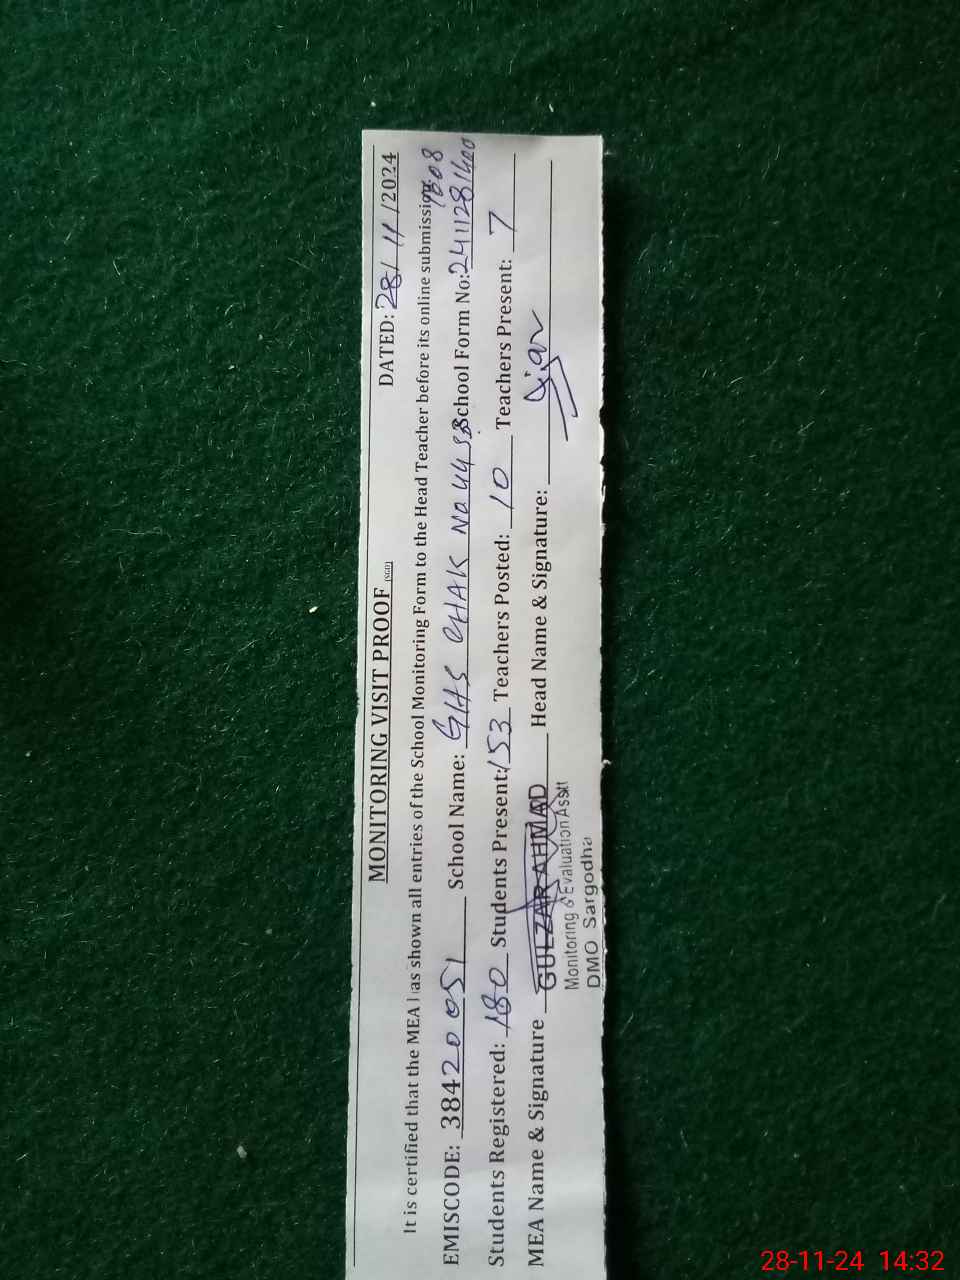 MONITORING VISIT PROOF (SGD)
DATED: 28/11/2024
It is certified that the MEA has shown all entries of the School Monitoring Form to the Head Teacher before its online submission.
EMISCODE: 38420051 School Name: GHS CHAK NO 44 SB School Form No: 2411281400 1608
Students Registered: 180 Students Present: 153 Teachers Posted: 10 Teachers Present: 7
MEA Name & Signature GULZAR AHMAD Head Name & Signature:
Monitoring & Evaluation Asstt
DMO Sargodha
28-11-24 14:32